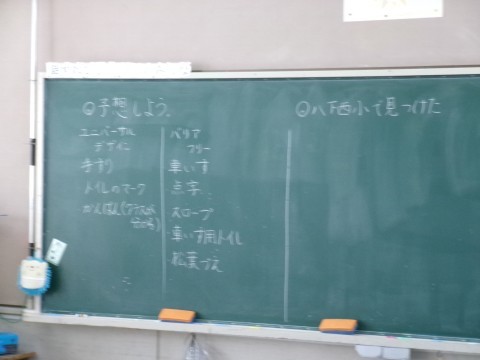 ◎予想しよう。
ユニバーサル
デザイン
手すり
トイレのマーク
かんばん
バリア
フリー
車いす
点字
スロープ
車いす用トイレ
松葉づえ
◎八下西小で見つけた